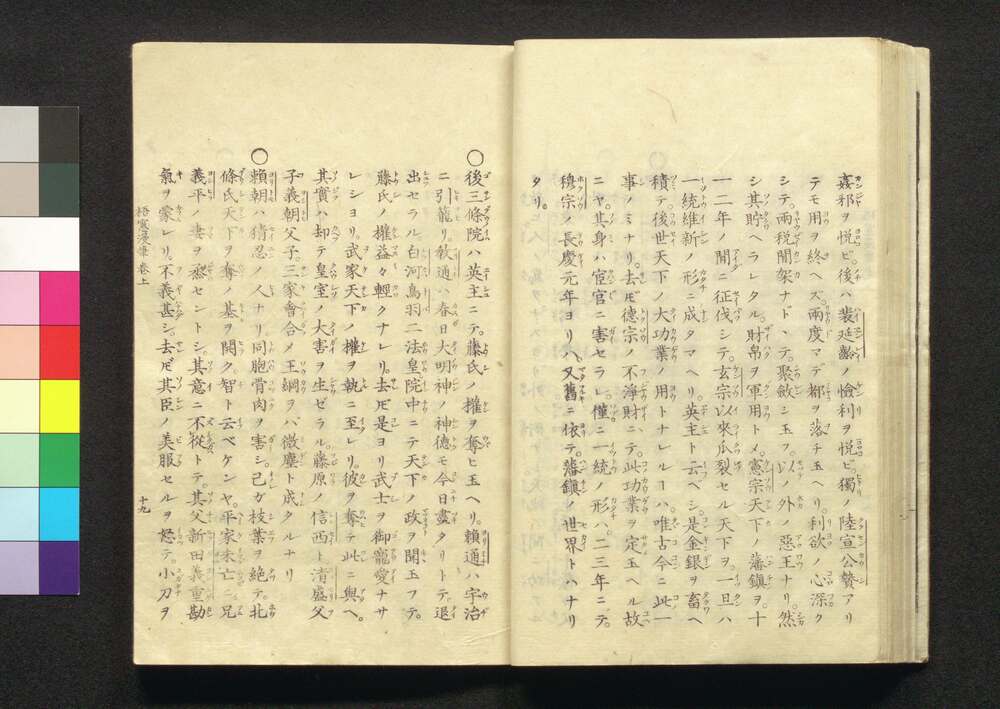 姦邪ヲ悦ビ。後ハ裴延齡ノ憸利ヲ悦ビ。獨ノ陸宣公贄アリ
テモ用ヲ終ヘズ。兩度マデ都ヲ落チ玉ヘリ。利欲ノ心深ク
シテ。兩税間架ナドヽテ。聚斂シ玉フ。以ノ外ノ惡王ナリ。然
シ其貯ヘラレタル。財帛ヲ軍用トメ。憲宗天下ノ藩鎭ヲ。十
一二年ノ間ニ征伐シテ。玄宗以來瓜裂セル天下ヲ。一旦ハ
一統維新ノ形ニ成タマヘリ。英主ト云ベシ。是金銀ヲ畜ヘ
積テ。後世天下ノ大功業ノ用トナレルヿハ。唯古今ニ此一
事ノミナリ。去𪜈德宗ノ不淨財ニテ。此功業ヲ定玉ヘル故
ニヤ。其身ハ宦官ニ害セラレ。僅ニ一統ノ形ハ。二三年ニテ。
穆宗ノ長慶元年ヨリハ。又舊ニ依テ。藩鎭ノ世界トハナリ
タリ。
〇後三條院ハ英主ニテ。藤氏ノ權ヲ奪ヒ玉ヘリ。賴通ハ宇治
ニ引籠リ。敎通ハ春日大明神ノ神德モ今日盡タリトテ。退
出セラル。白河鳥羽二法皇院中ニテ天下ノ政ヲ聞玉フテ。
藤氏ノ權益々輕クナレリ。去𪜈是ヨリ武士ヲ御寵愛ナサ
レシヨリ。武家天下ノ權ヲ執ニ至レリ。彼ヲ奪テ此ニ與ヘ。
其實ハ却テ皇室ノ大害ヲ生ゼラル。藤原ノ信西ト清盛父
子義朝父子。三家會合メ王綱ヲバ微塵ト成タルナリ
〇賴朝ハ猜忍ノ人ナリ同胞骨肉ヲ害シ。己ガ枝葉ヲ絶テ。北
條氏天下ヲ奪ノ基ヲ開ク智ト云ベケンヤ。平家未亡ニ兄
義平ノ妻ヲ烝セントシ。其意ニ不從トテ。其父新田義重勘
氣ヲ蒙レリ。不義甚シ。去𪜈其臣ノ美服セルヲ怒テ。小刀ヲ
梧窓漫筆 卷上
十九